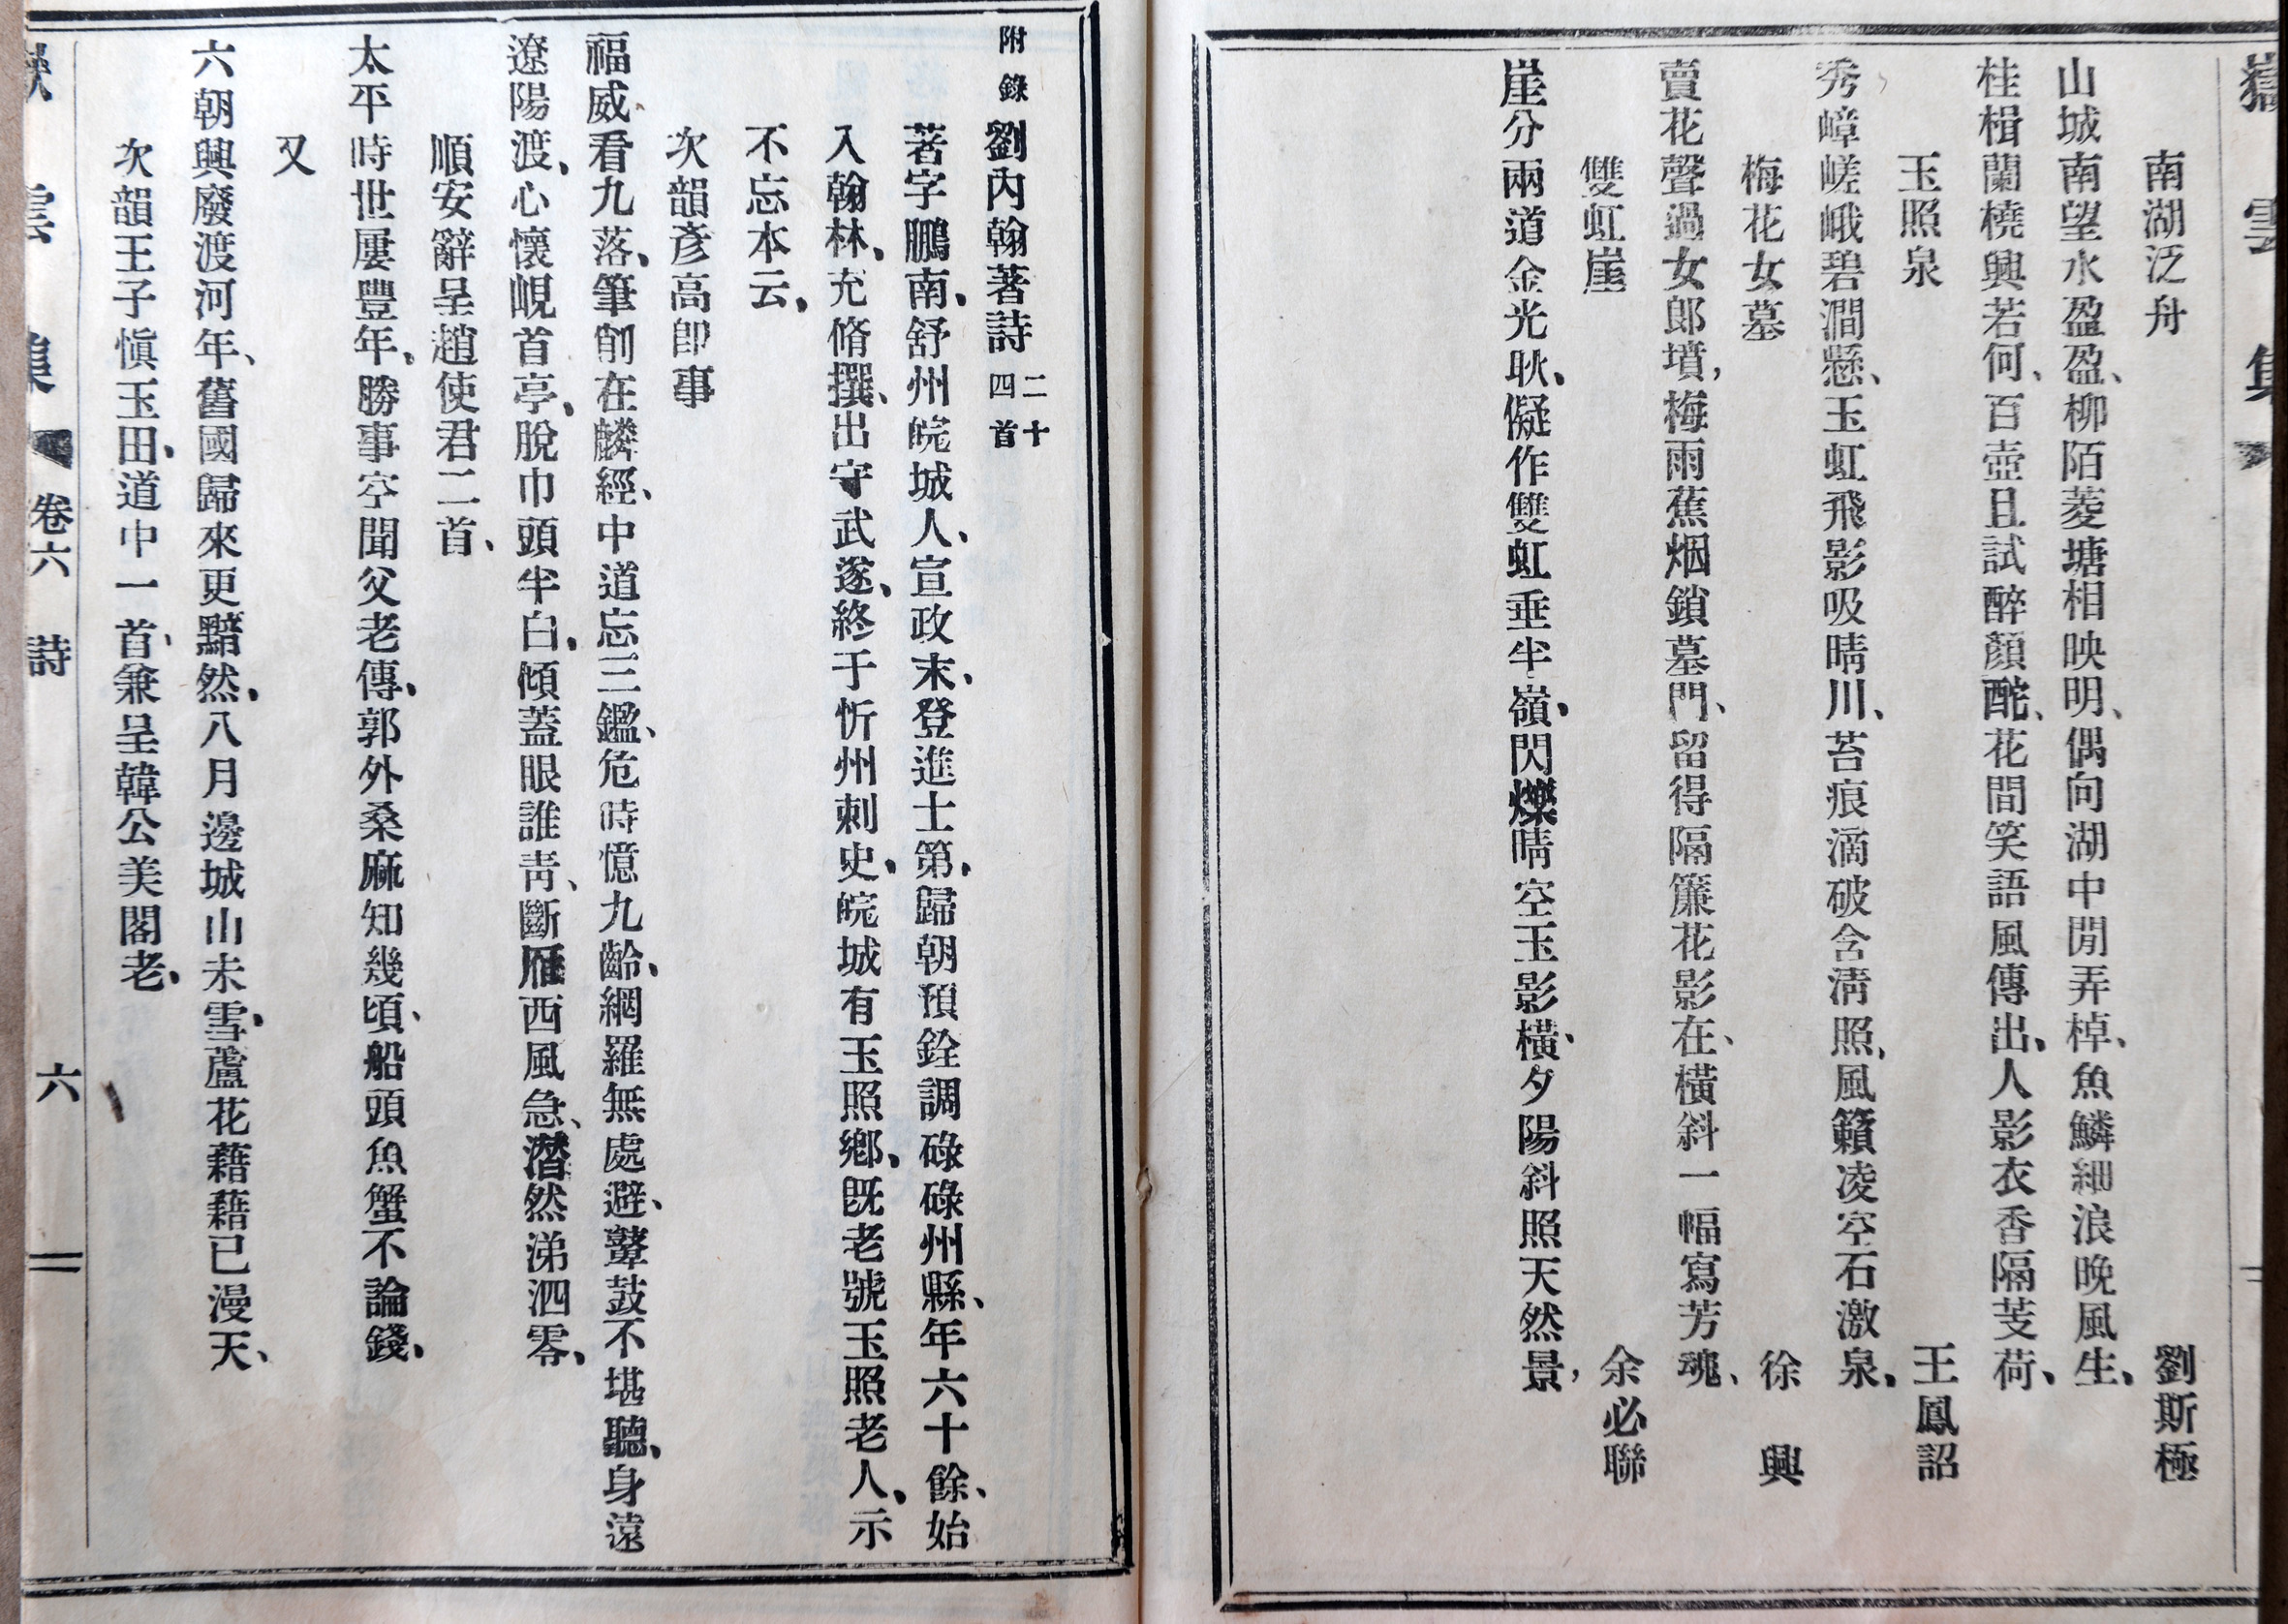 嶽雲集
南湖泛舟　劉斯極
山城南望水盈盈、柳陌菱塘相映明、偶向湖中閒弄棹、魚鱗細浪晚風生、
桂楫蘭橈興若何、百壺且試醉顏酡、花間笑語風傳出、人影衣香隔芰荷、
玉照泉　王鳳詔
秀嶂嵯峨碧澗懸、玉虹飛影吸晴川、苔痕滴破含淸照、風籟凌空石激泉、
梅花女墓　徐　興
賣花聲過女郞墳、梅雨蕉烟鎖墓門、留得隔簾花影在、橫斜一幅寫芳魂、
雙虹崖　余必聯
崖分兩道金光耿、儗作雙虹垂半嶺、閃爍晴空玉影橫、夕陽斜照天然景、
附錄劉內翰著詩二十四首
著字鵬南、舒州皖城人、宣政末、登進士第、歸朝預銓調碌碌州縣、年六十餘、始
入翰林、充脩撰、出守武遂、終于忻州刺史、皖城有玉照鄕、旣老號玉照老人、示
不忘本云、
次韻彥高卽事
福威看九落、筆削在麟經、中道忘三鑑、危時憶九齡、網羅無處避、鼙鼓不堪聽、身遠
遼陽渡、心懷峴首亭、脫巾頭半白、傾蓋眼誰靑、斷雁西風急、潸然涕泗零、
順安辭呈趙使君二首、
太平時世屢豐年、勝事空聞父老傳、郭外桑麻知幾頃、船頭魚蟹不論錢、
又
六朝興廢渡河年、舊國歸來更黯然、八月邊城山未雪、蘆花藉藉已漫天、
次韻王子愼玉田、道中一首、兼呈韓公美閣老、
嶽雲集　卷六　詩　六